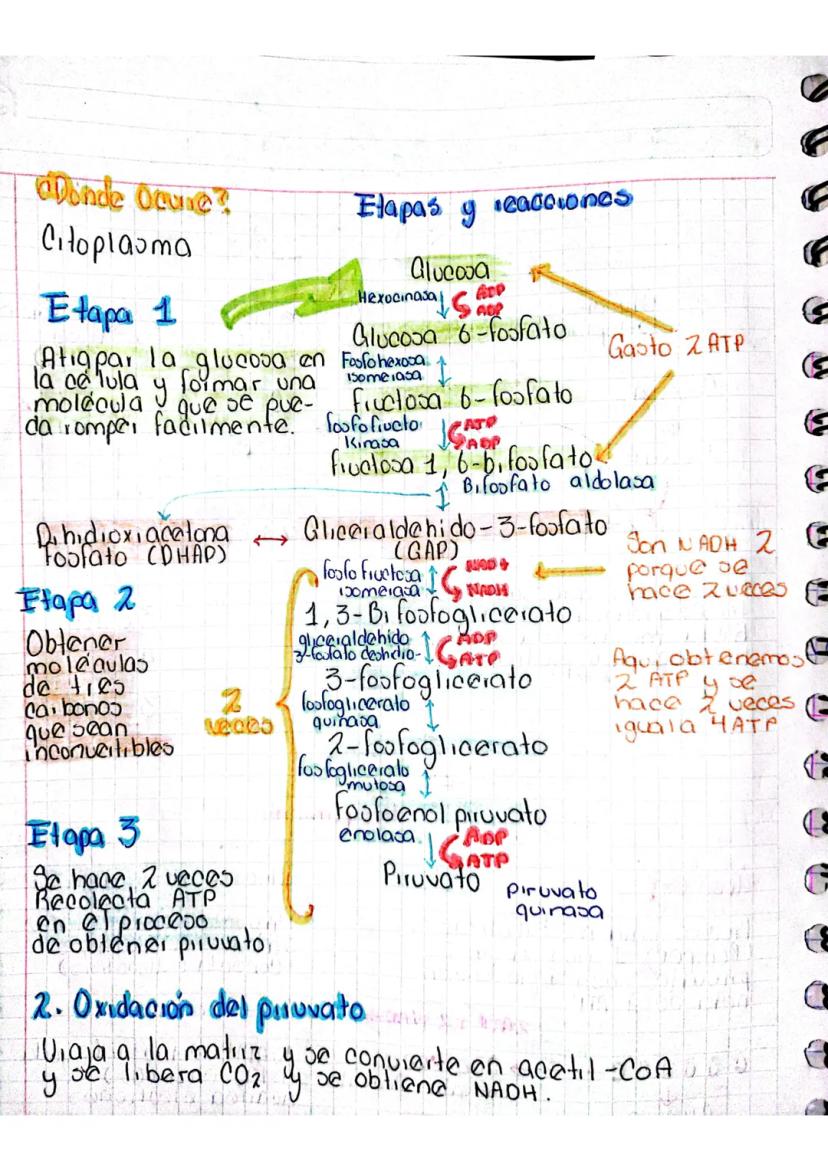 ¿Dónde Ocurre?
Citoplasma
Etapas y reacciones
Etapa 1
Atrapar la glucosa en
la célula y formar una
molécula y que se pue-
da romper facilmente.
Glucosa
Hexocinasa
ADP
Glucosa 6-fosfato
Fosfohexosa
isomerasa
Fructosa 6-fosfato
fosfofructo
Kinasa
ATP
ADP
fructosa 1,6-bifosfato
Gasto 2 ATP
Bifosfato aldolasa
Dihidroxiacetona
fosfato (DHAP)
Gliceraldehido-3-fosfato
(GAP)
Son NADH 2
porque se
hace 2 veces
fosfo fructosa
isomerasa
NAD+
NADH
Etapa 2
Obtener
moléculas
de tres
carbonos
que sean
inconvertibles
2
veces
1,3-Bifosfoglicerato
gliceraldehido
3-fosfato deshidro-
ADP
ATP
3-fosfoglicerato
fosfoglicerato
quinasa
2-fosfoglicerato
fosfoglicerato
mutosa
Fosfoenol piruvato
enolasa
ADP
ATP
Piruvato
piruvato
quinasa
Aqui obtenemos
2 ATP y se
hace 2 veces
igual a 4 ATP
Etapa 3
Se hace 2 veces
Recolecta ATP
en el proceso
de obtener piruvato
2. Oxidación del piruvato
Viaja a la matriz y se convierte en acetil-CoA
y se libera CO2 y se obtiene NADH.